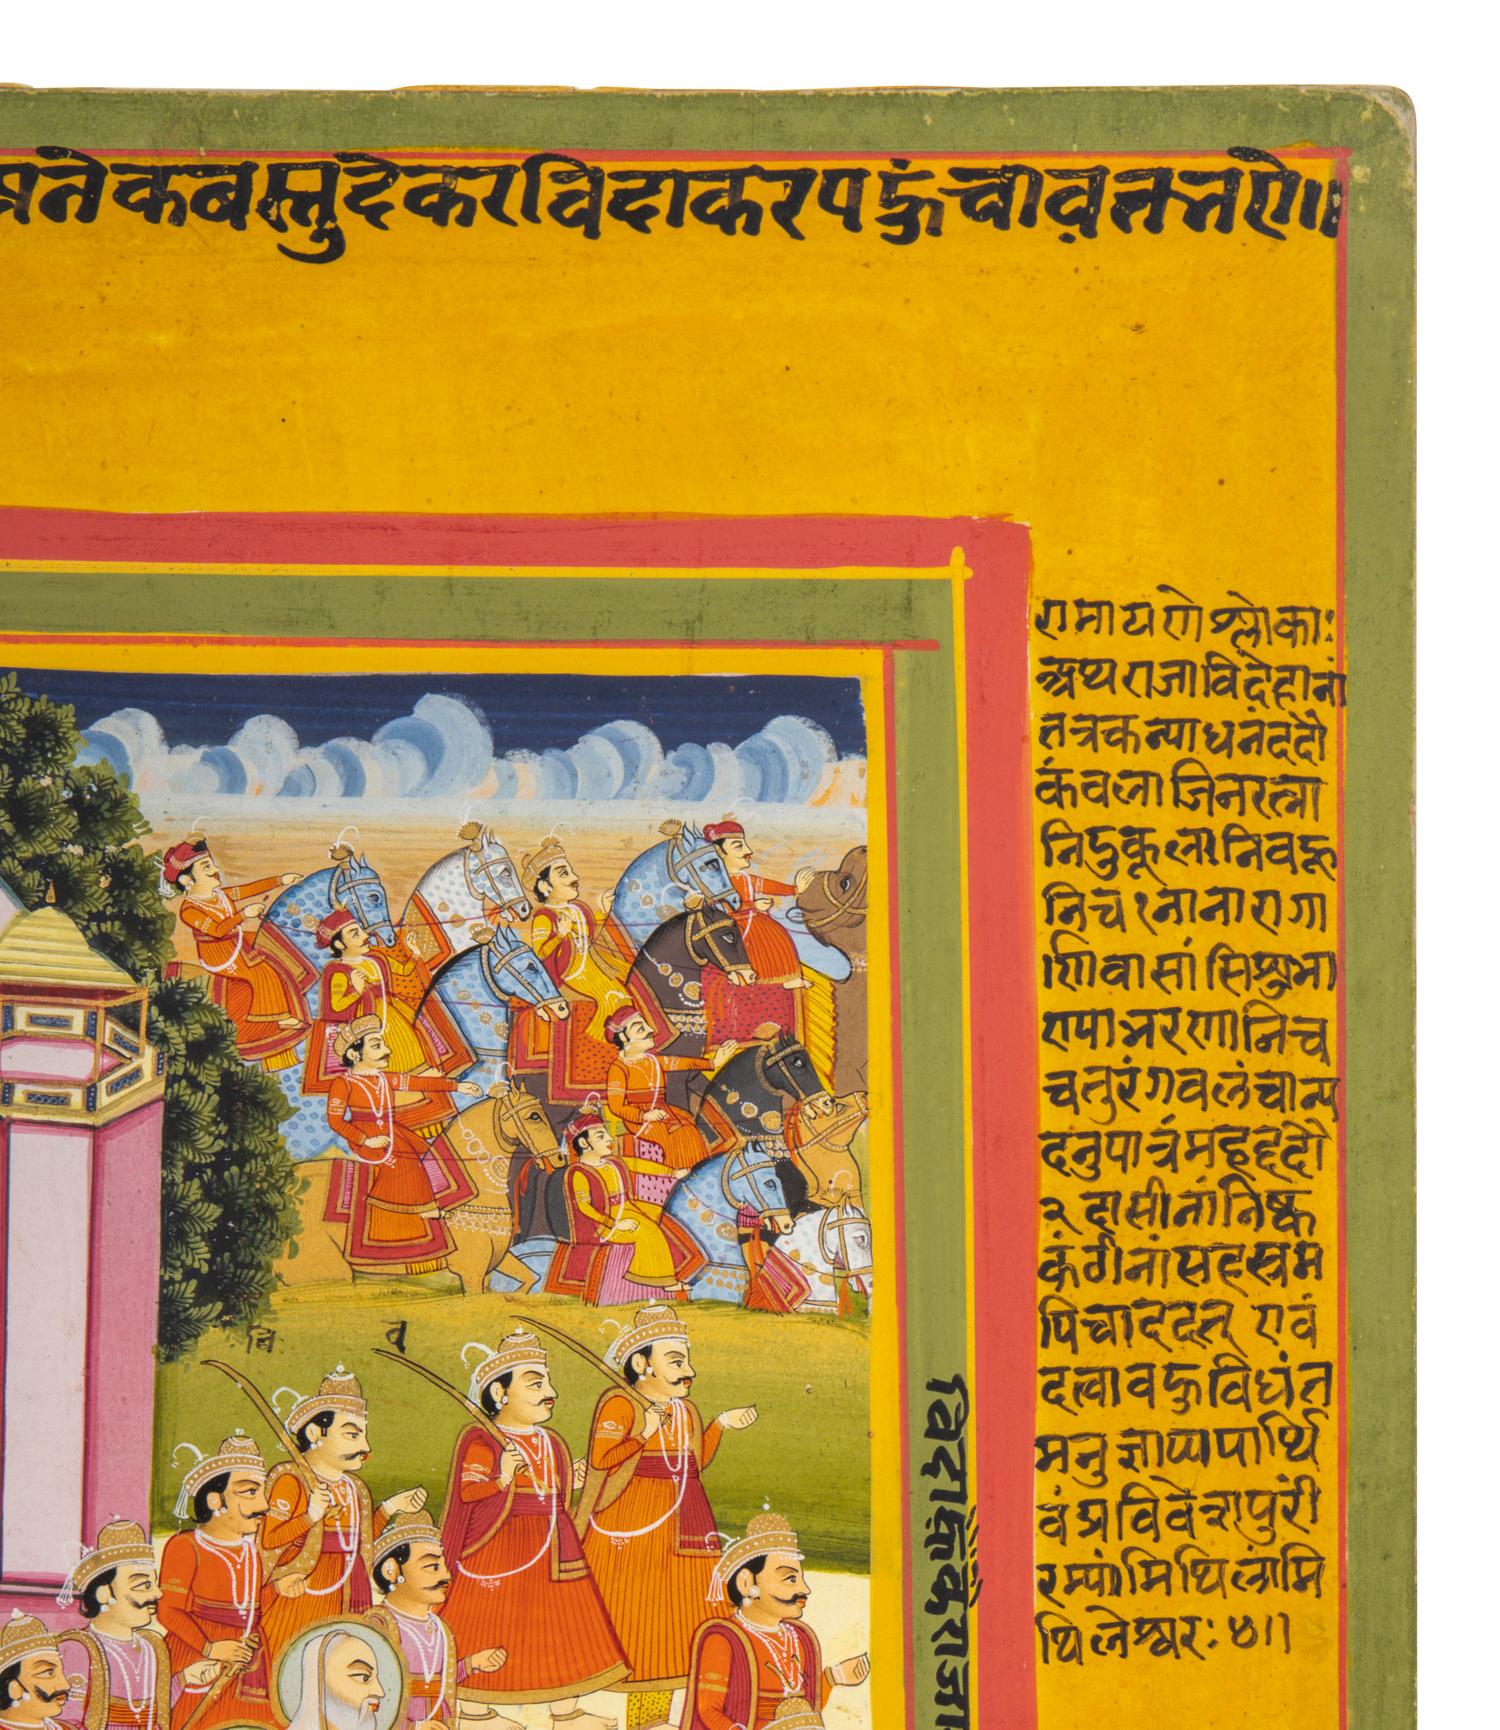 नेक बस्तु दे कर विदा कर पहुंचावतन ऐ॥
रामायणे श्लोकाः
अथ राजा विदेहानां
तत्र कन्याधनं ददौ
कंबलाजिनरत्ना
नि दुकूलानि वहू
नि च १ नानारागा
णि वासांसि शुभा
एपाभरणानि च
चतुरंगवलं चान्य
दनुपात्रं महद्ददौ
२ दासीनां निष्क
कंठीनां सहस्रम
पि चाददत् एवं
दत्वा वहुविधं त
मनुज्ञाप्य पार्थि
वं प्रविवेश पुरीं
रम्यां मिथिलां मि
थिलेश्वरः ४॥
वि
व
विदा कर राजा